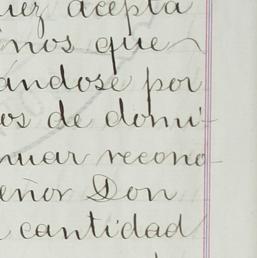 uez acepta
inos que
ándose por
os de domi-
nuar recono-
eñor Don
cantidad